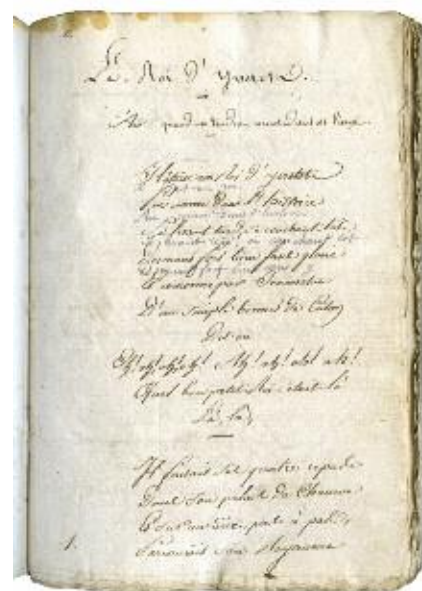 Le Roi d'Yvetot.
Air: quand un tendron vient dans ces lieux.
Il était un Roi d'Yvetot
Peu connu dans l'histoire
Se levant tard, se couchant tôt,
Dormant fort bien sans gloire
Et couronné par Jeanneton
D'un simple bonnet de Coton
Dit-on
Oh! oh! oh! oh! Ah! ah! ah! ah!
Quel bon petit Roi c'était là
Là, là,
Il faisait ses quatre repas
Dans son palais de Chaume
Et sur un âne, pas à pas,
Parcourait son Royaume
1.